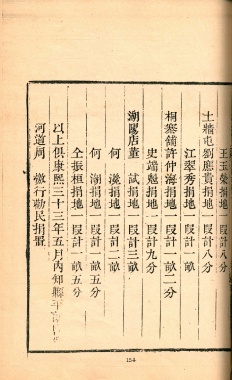 王玉癸捐地一段計八分
土積屯劉應貴捐地一段計八分
江翠秀捐地一段計一畝
桐寨舖許仲海捐地一段計一畝二分
史端魁捐地一段計九分
湖陽店董　試捐地一段計三畝
何　溪捐地一段計二畝
何　湖捐地一段計一畝五分
仝振桓捐地一段計一畝五分
以上俱康熙三十三年五月內知縣
河道周　檄行勸民捐置
154